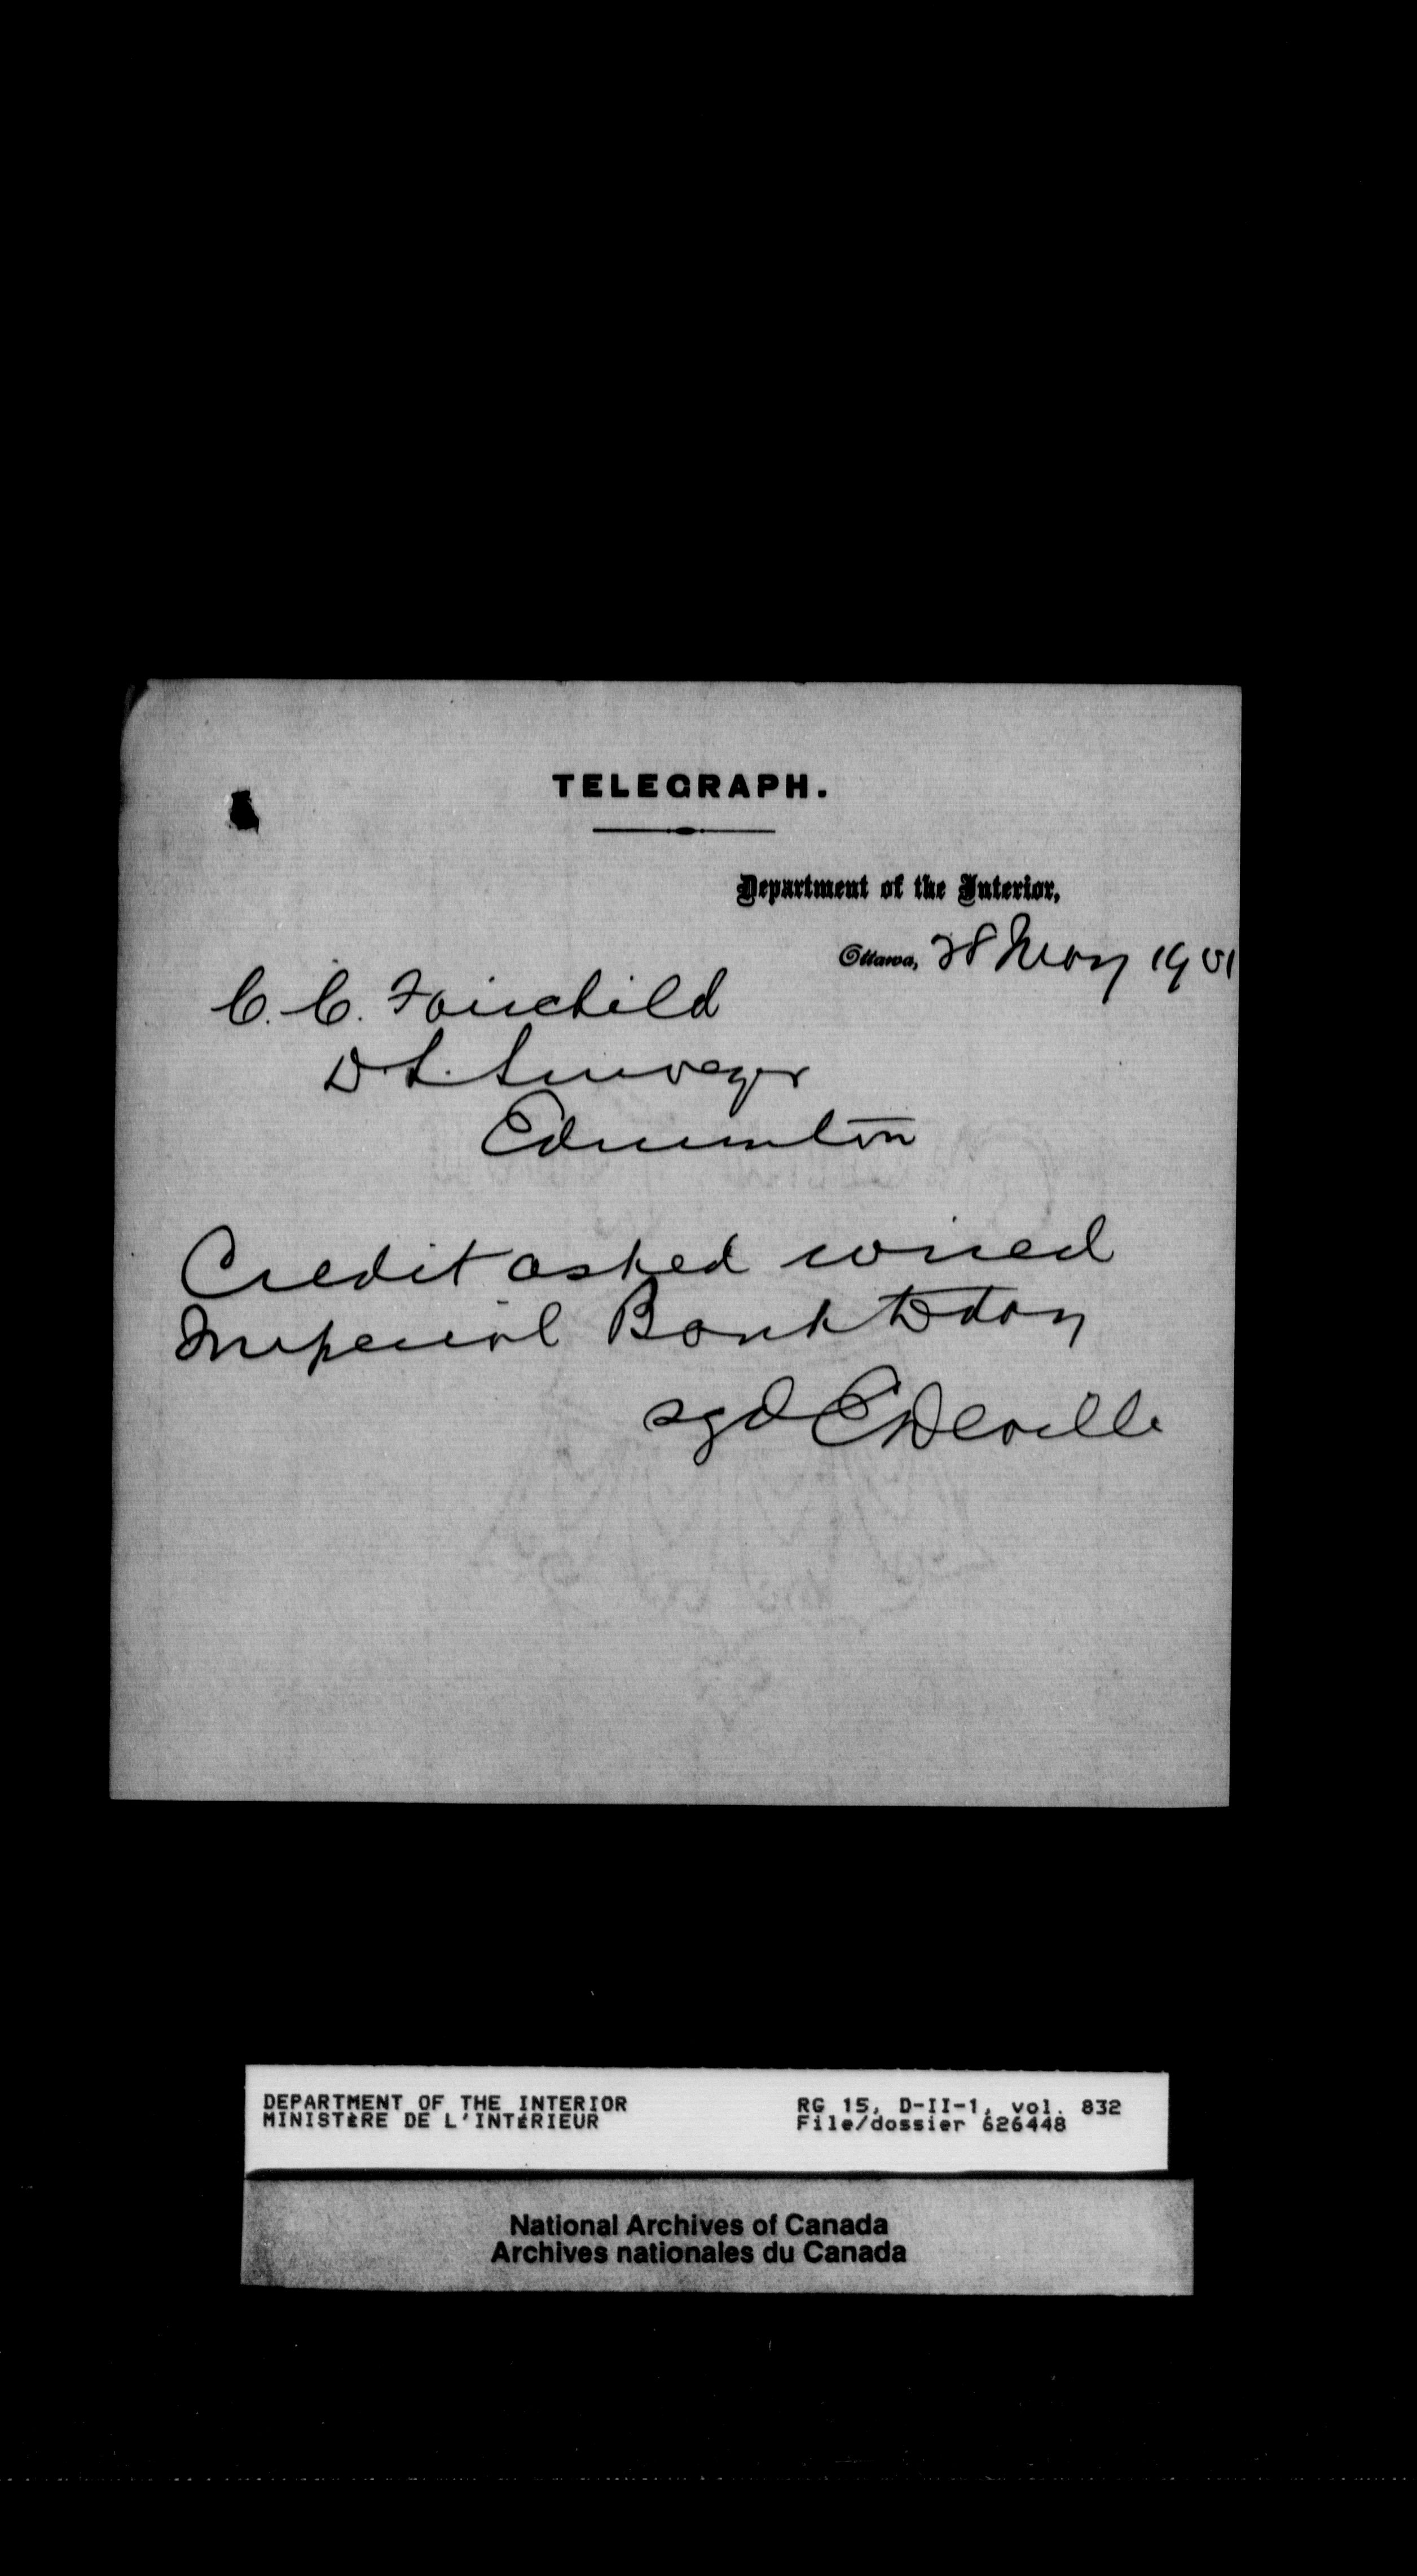 TELEGRAPH.
Department of the Interior,
Ottawa, 28 May 1901
C. C. Fairchild
D. L. Surveyor
Edmonton
Credit asked wired
Imperial Bank today
sgd E Deville
DEPARTMENT OF THE INTERIOR
MINISTÈRE DE L'INTÉRIEUR
RG 15, D-II-1, vol. 832
File/dossier 626448
National Archives of Canada
Archives nationales du Canada